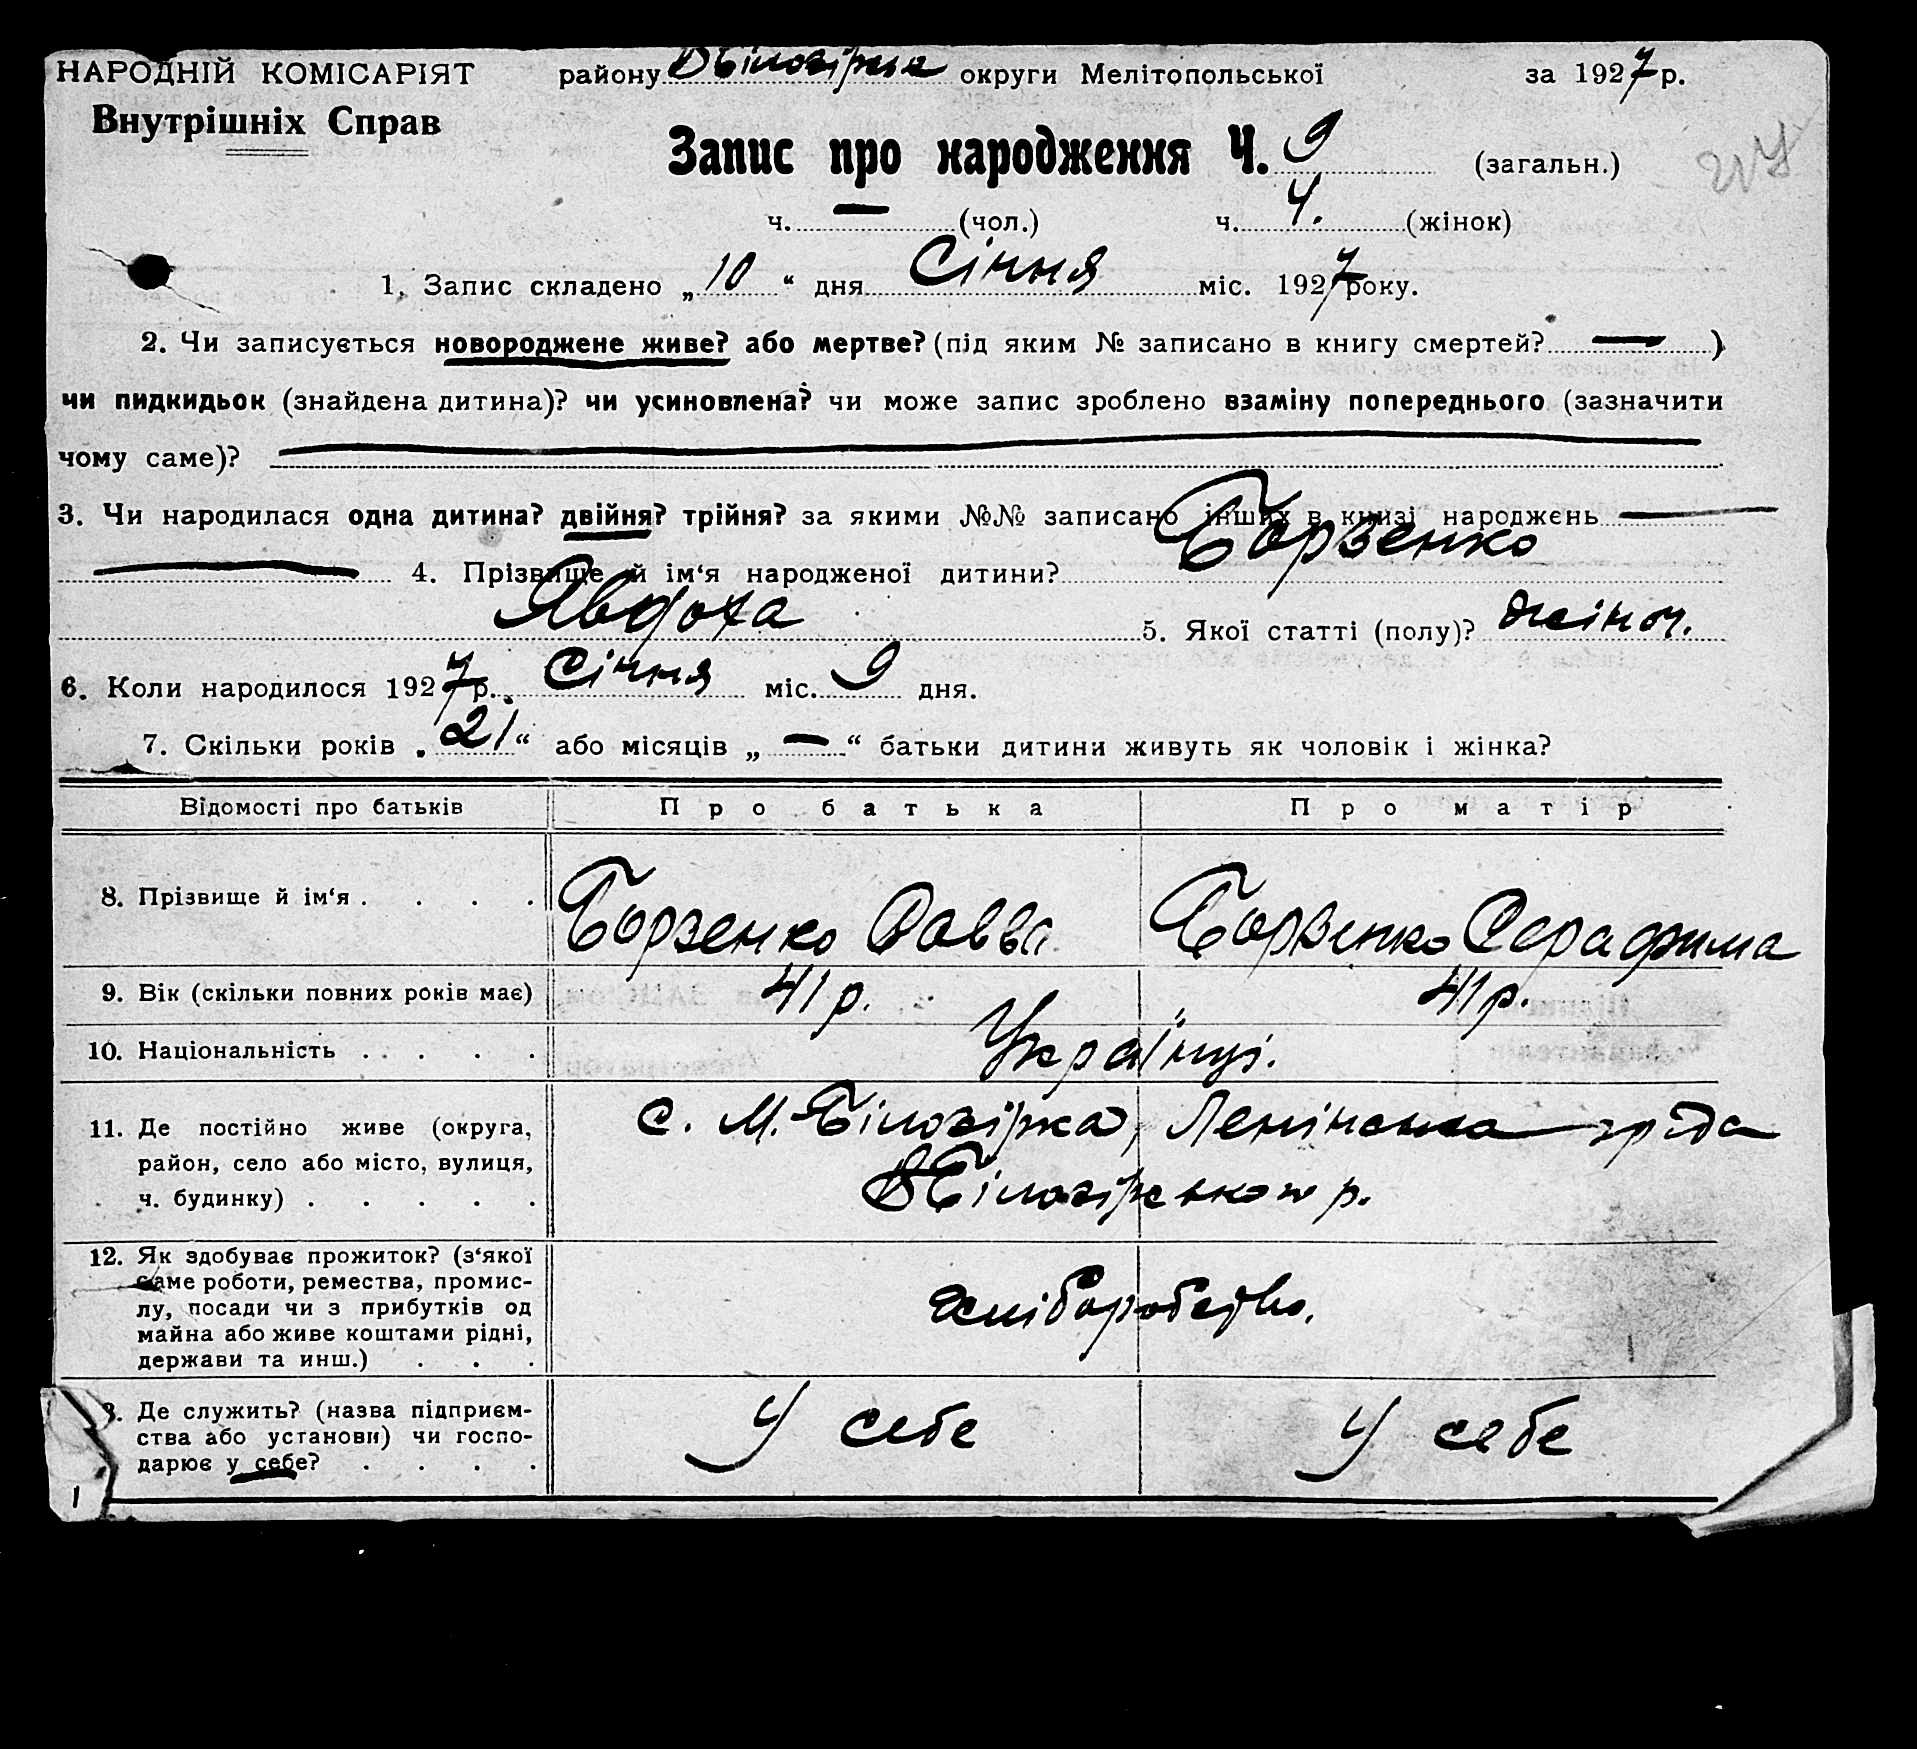 НАРОДНІЙ КОМІСАРІЯТ району В Білозірка округи Мелітопольської за 1927 р.
Внутрішніх Справ
Запис про народження Ч. 9 (загальн.)
ч. — (чол.) ч. 4. (жінок)
1. Запис складено „10“ дня Січня міс. 1927 року.
2. Чи записується новороджене живе? або мертве? (під яким № записано в книгу смертей? — )
чи пидкидьок (знайдена дитина)? чи усиновлена? чи може запис зроблено взаміну попереднього (зазначити
чому саме)? —
3. Чи народилася одна дитина? двійня? трійня? за якими №№ записано інших в книзі народжень —
— 4. Прізвище й ім‘я народженої дитини? Борзенко
Явдоха 5. Якої статті (полу)? жіноч.
6. Коли народилося 1927 р. Січня міс. 9 дня.
7. Скільки років „21“ або місяців „—“ батьки дитини живуть як чоловік і жінка?
Відомості про батьків Про батька Про матір
8. Прізвище й ім‘я . . . . Борзенко Савва Борзенко Серафима
9. Вік (скільки повних років має) 41 р. 41 р.
10. Національність . . . . Українці.
11. Де постійно живе (округа, с. М. Білозірка, Ленінська
район, село або місто, вулиця,
ч. будинку) . . . . . В Білозірського р.
12. Як здобуває прожиток? (з‘якої
саме роботи, ремества, промис-
лу, посади чи з прибутків од хліборобство.
майна або живе коштами рідні,
держави та инш.) . . .
3. Де служить? (назва підприєм-
ства або установи) чи госпо- У себе У себе
дарює у себе? . . . .
1